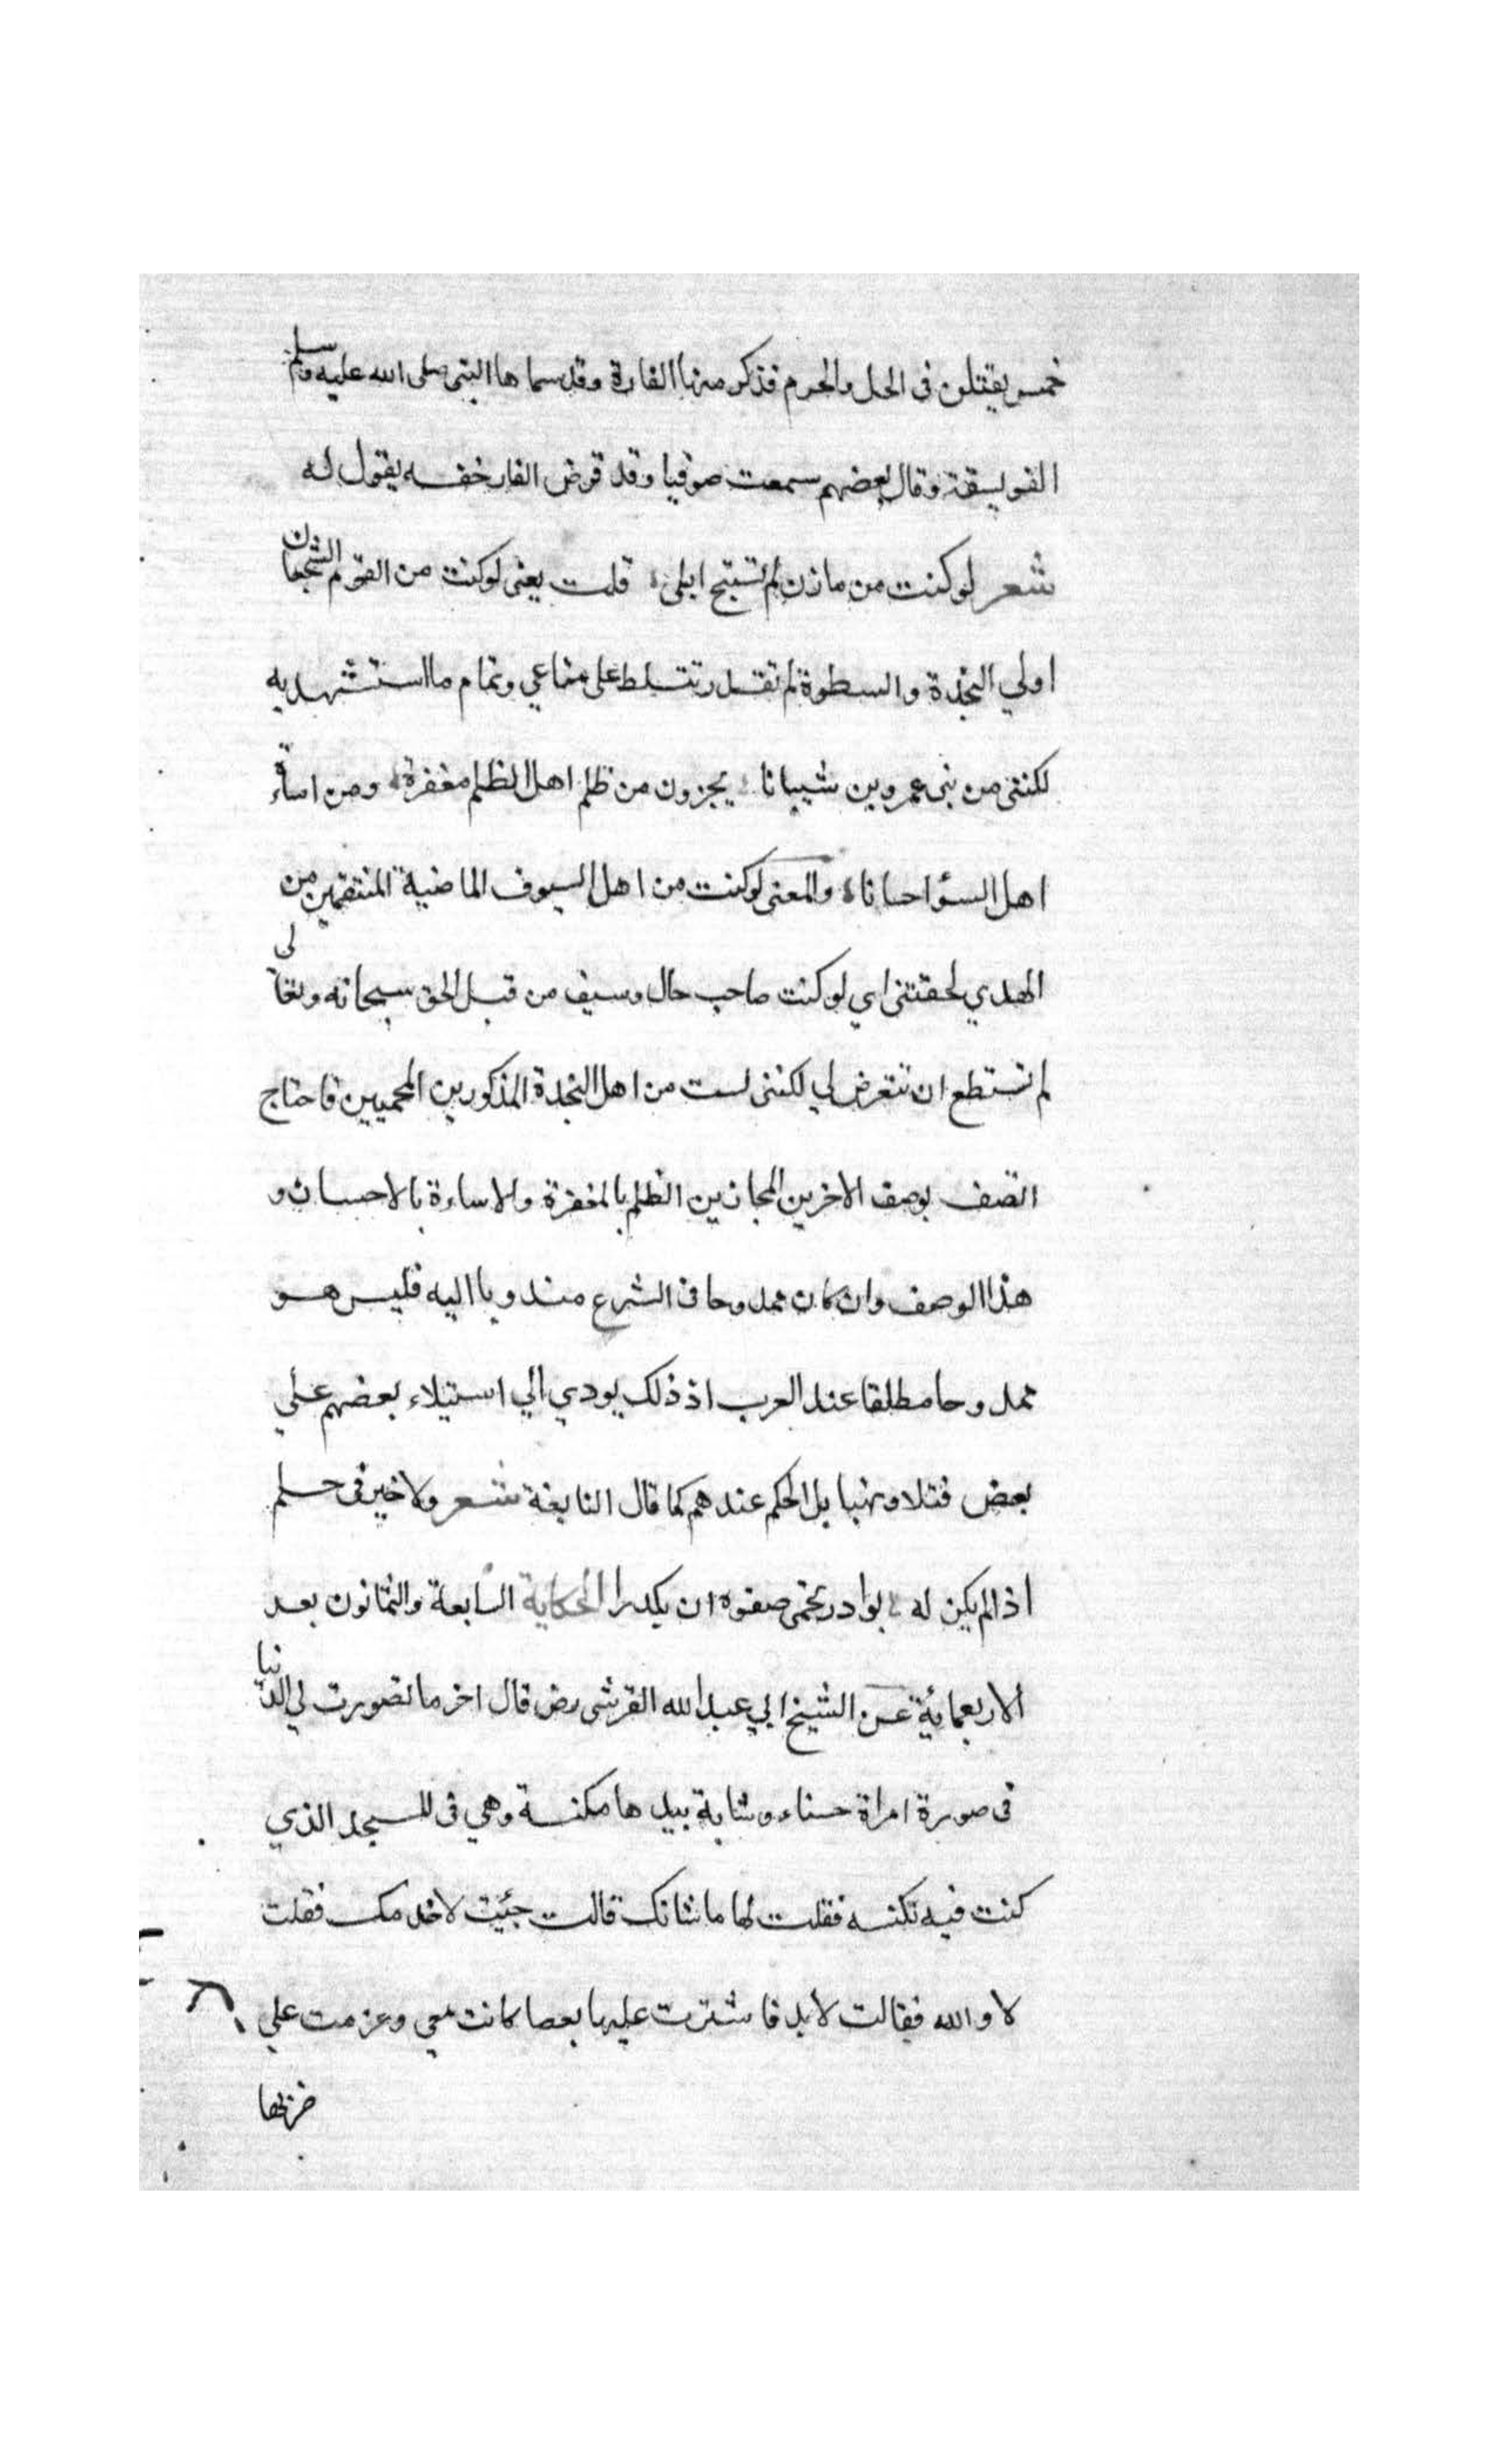 خمس يقتلن فى الحل والحرم فذكر منها الفارة وقد سماها النبى صلى الله عليه وسلم
الفويسقة وقال بعضهم سمعت صوفيا وقد قرض الفار خفه يقول له
شعر لو كنت من مازن لم تستبح ابلى قلت يعنى لو كنت من القوم الشجعان
اولي النجدة والسطوة لم تقدر تتسلط على متاعي وتمام ما استشهد به
لكننى من بنى عمرو بن شيبانا يجزون من ظلم اهل الظلم مغفرة ومن اساءة
اهل السؤ احسانا والمعنى لو كنت من اهل السيوف الماضية المنتقمين من
المهدي لحقتنى اي لو كنت صاحب حال وسيف من قبل الحق سبحانه وتعالى
لم تستطع ان تتعرض لي لكننى لست من اهل النجدة المذكورين المحميين فاحتاج
اتصف بوصف الاخرين المجازين الظلم بالمغفرة والاساءة بالاحسان و
هذا الوصف وان كان ممدوحا فى الشرع مندوبا اليه فليس هو
ممدوحا مطلقا عند العرب اذ ذلك يودي الي استيلاء بعضهم علي
بعض قتلا ونهبا بل الحكم عندهم كما قال النابغة شعر ولا خير فى حلم
اذا لم يكن له بوادر تحمى صفوه ان يكدرا الحكاية السابعة والثمانون بعد
الاربعمائة عن الشيخ ابي عبد الله القرشى رض قال اخر ما تصورت لي الدنيا
فى صورة امراة حسناء وشابة بيدها مكنسة وهي فى المسجد الذي
كنت فيه تكنسه فقلت لها ما شانك قالت جئيت لاخدمك فقلت
لا والله فقالت لا بد فاشترت عليها بعصا كانت معي وعزمت علي
ضربها